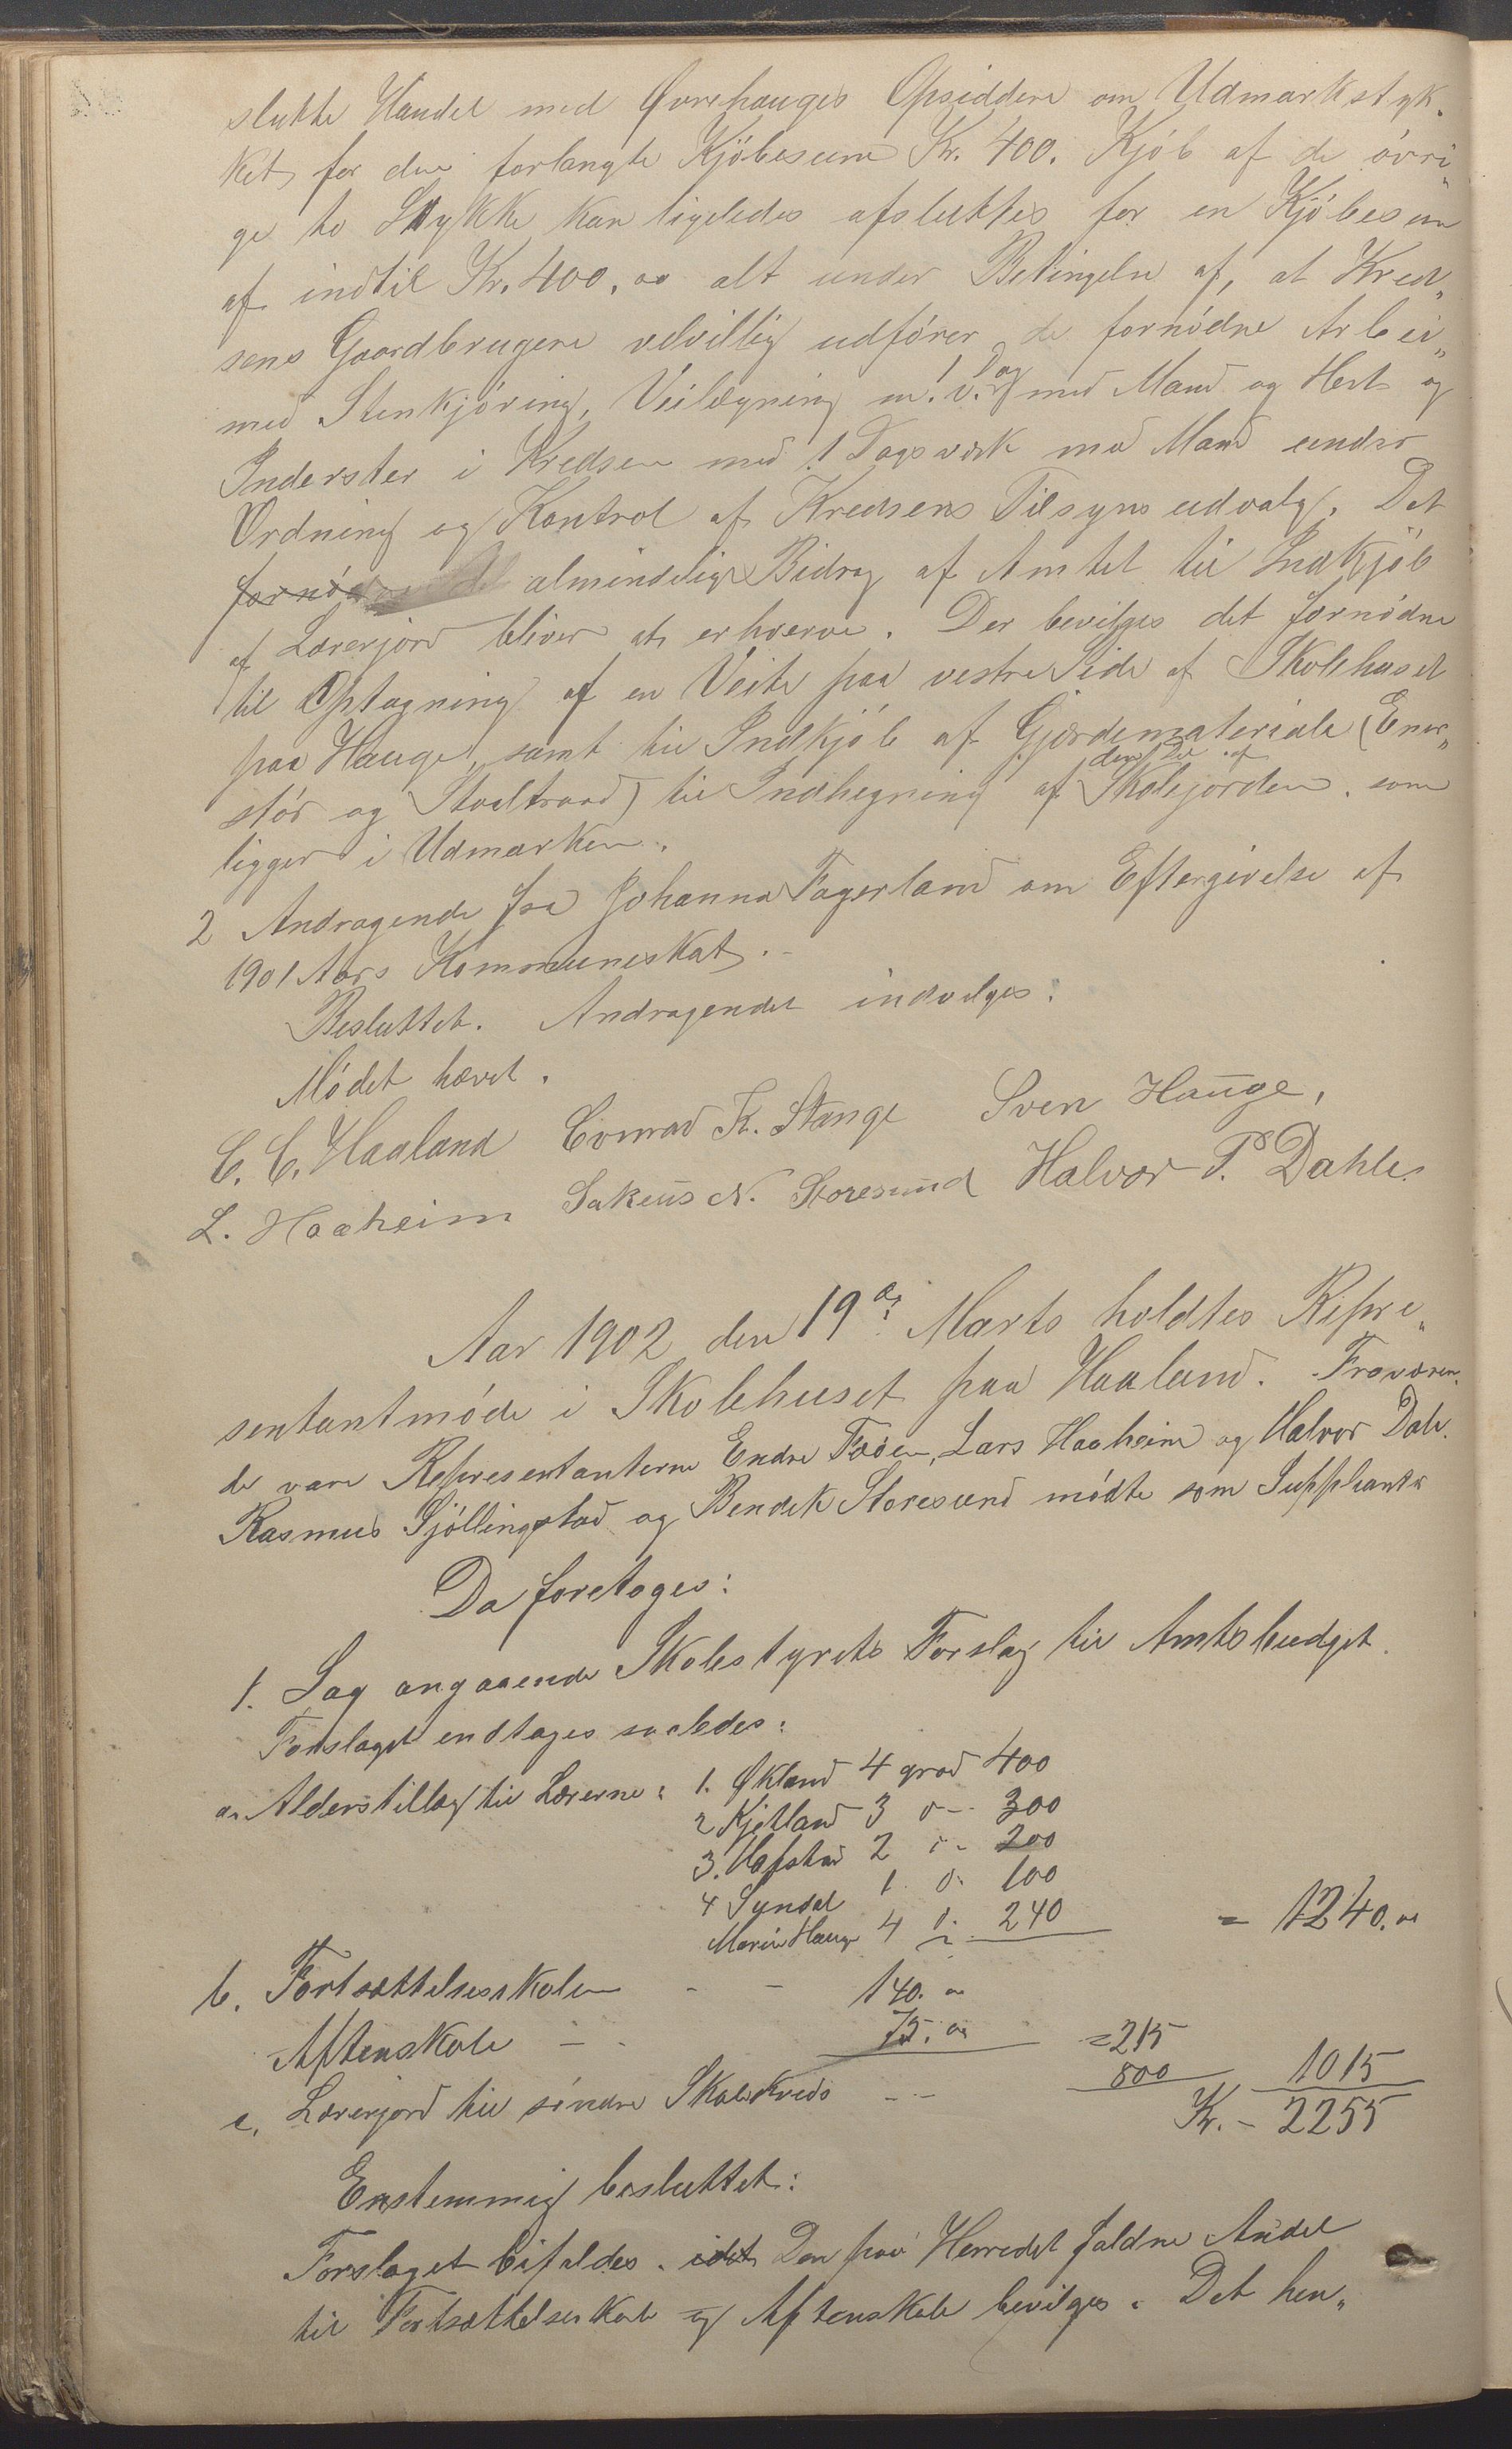 slutte Handel med Øvrehauges Opsiddere om Udmarkstyk„
ket for den forlangte Kjöbesum Kr. 400. Kjöb af de övri„
ge to Stykke kan ligeledes afsluttes for en Kjöbesum
af indtil Kr. 400.00 alt under Betingelse af, at Kred„
sens Gaardbrugere velvillig udförer de fornödne Arbei„
med Stenkjöring, Veilægning m. v. 1 Dag med Mand og Hest og
Inderster i Kredsen med 1 Dagsværk med Mand under
Ordning og Kontrol af Kredsens Tilsynsudvalg. Det
almindelige Bidrag af Amtet til Indkjöb
af Lærerjord bliver at erhverve. Der bevilges det fornödne
til Optagning af en Veite paa vestre Side af Skolehuset
paa Hauge, samt til Indkjöb af Gjærdemateriale (Ener„
stör og Staaltraad) til Indhegning af den Del af Skolejorden, som
ligger i Udmarken.
2 Andragende fra Johanna Fagerland om Eftergivelse af
1901 Aars Kommuneskat.
Besluttet. Andragendet indvilges.
Mödet hævet.
C. C. Haaland Conrad K. Stange Sven Hauge,
L. Haaheim Sakeus N. Storesund Halvor P. Dahle.
Aar 1902 den 19de Marts holdtes Repre„
sentantmöde i Skolehuset paa Haaland. Fraværen„
de vare Representanterne Endre Fööen, Lars Haaheim og Halvor Dale.
Rasmus Sjöllingstad og Bendik Storesund mödte som Suppleanter
Da foretoges:
1. Sag angaaende Skolestyrets Forslag til Amtsbudget.
Forslaget endtages saaledes:
a. Alderstillæg til Lærerne: 1. Økland 4 grad 400
2 Kjetland 3 o- 300
3. Hafstad 2 o- 200
4 Syndal 1 o- 100
Marie Hauge 4 o- 240 = 1240.00
b. Fortsættelsesskolen - - 140.00
Aftenskole - - 75.00 =215
c. Lærerjord til söndre Skolekreds - - 800 1015
Kr. - 2255
Enstemmig besluttet:
Forslaget bifaldes. idet Den paa Herredet faldne Andel
til Fortsættelsesskole og Aftenskole bevilges. Det hen„